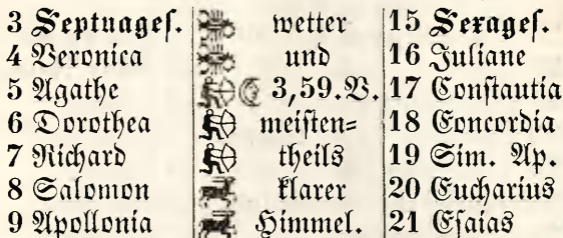 3 Septuages. wetter 15 Sexages.
4 Veronica und 16 Juliane
5 Agathe 3,59. V. 17 Constantia
6 Dorothea meisten= 18 Concordia
7 Richard theils 19 Sim. Ap.
8 Salomon klarer 20 Eucharius
9 Apollonia Himmel. 21 Esaias